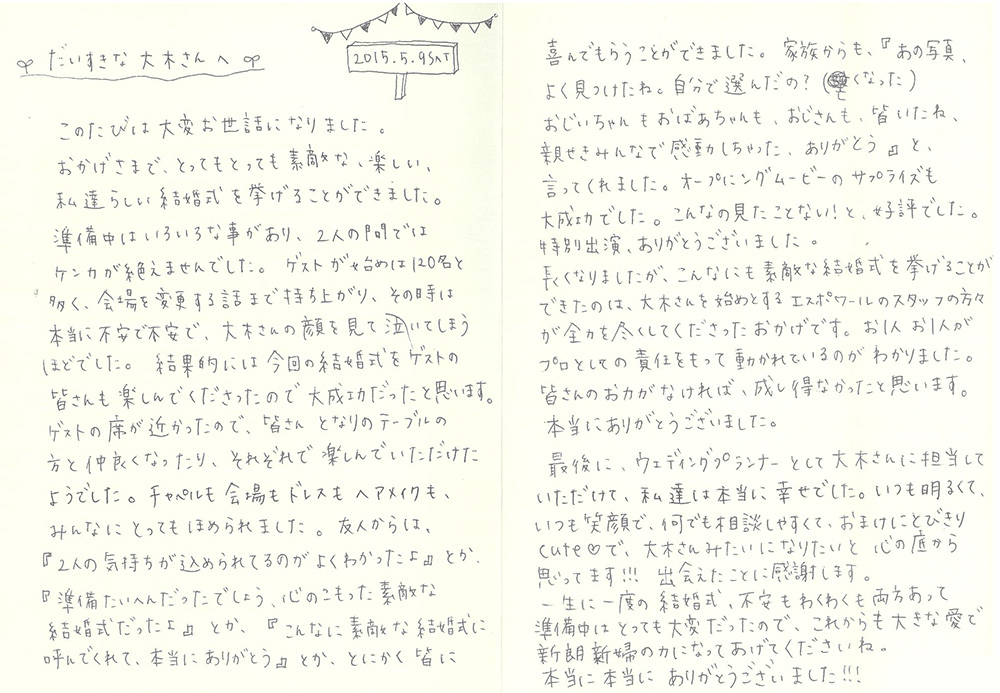 だいすきな 大木さんへ
2015.5.9SAT
このたびは大変お世話になりました。
おかげさまで、とってもとっても素敵な、楽しい、
私達らしい結婚式を挙げることができました。
準備中はいろいろな事があり、2人の間では
ケンカが絶えませんでした。ゲストが始めは120名と
多く、会場を変更する話まで持ち上がり、その時は
本当に不安で不安で、大木さんの顔を見て泣いてしまう
ほどでした。結果的には今回の結婚式をゲストの
皆さんも楽しんでくださったので大成功だったと思います。
ゲストの席が近かったので、皆さん となりのテーブルの
方と仲良くなったり、それぞれで楽しんでいただけた
ようでした。チャペルも会場もドレスもヘアメイクも、
みんなにとってもほめられました。友人からは、
『2人の気持ちが込められてるのがよくわかったよ』とか、
『準備たいへんだったでしょう、心のこもった素敵な
結婚式だったよ』とか、『こんなに素敵な結婚式に
呼んでくれて、本当にありがとう』とか、とにかく皆に
喜んでもらうことができました。家族からも、『あの写真、
よく見つけたね。自分で選んだの？(くなった)
おじいちゃんもおばあちゃんも、おじさんも、皆いたね、
親せきみんなで感動しちゃった、ありがとう』と、
言ってくれました。オープニングムービーのサプライズも
大成功でした。こんなの見たことない！と、好評でした。
特別出演、ありがとうございました。
長くなりましたが、こんなにも素敵な結婚式を挙げることが
できたのは、大木さんを始めとするエスポワールのスタッフの方々
が全力を尽くしてくださったおかげです。お1人お1人が
プロとしての責任をもって動かれているのがわかりました。
皆さんのお力がなければ、成し得なかったと思います。
本当にありがとうございました。
最後に、ウェディングプランナーとして大木さんに担当して
いただけて、私達は本当に幸せでした。いつも明るくて、
いつも笑顔で、何でも相談しやすくて、おまけにとびきり
cute♡で、大木さんみたいになりたいと心の底から
思ってます!!! 出会えたことに感謝します。
一生に一度の結婚式、不安もわくわくも両方あって
準備中はとっても大変だったので、これからも大きな愛で
新朗新婦の力になってあげてくださいね。
本当に本当に ありがとうございました!!!